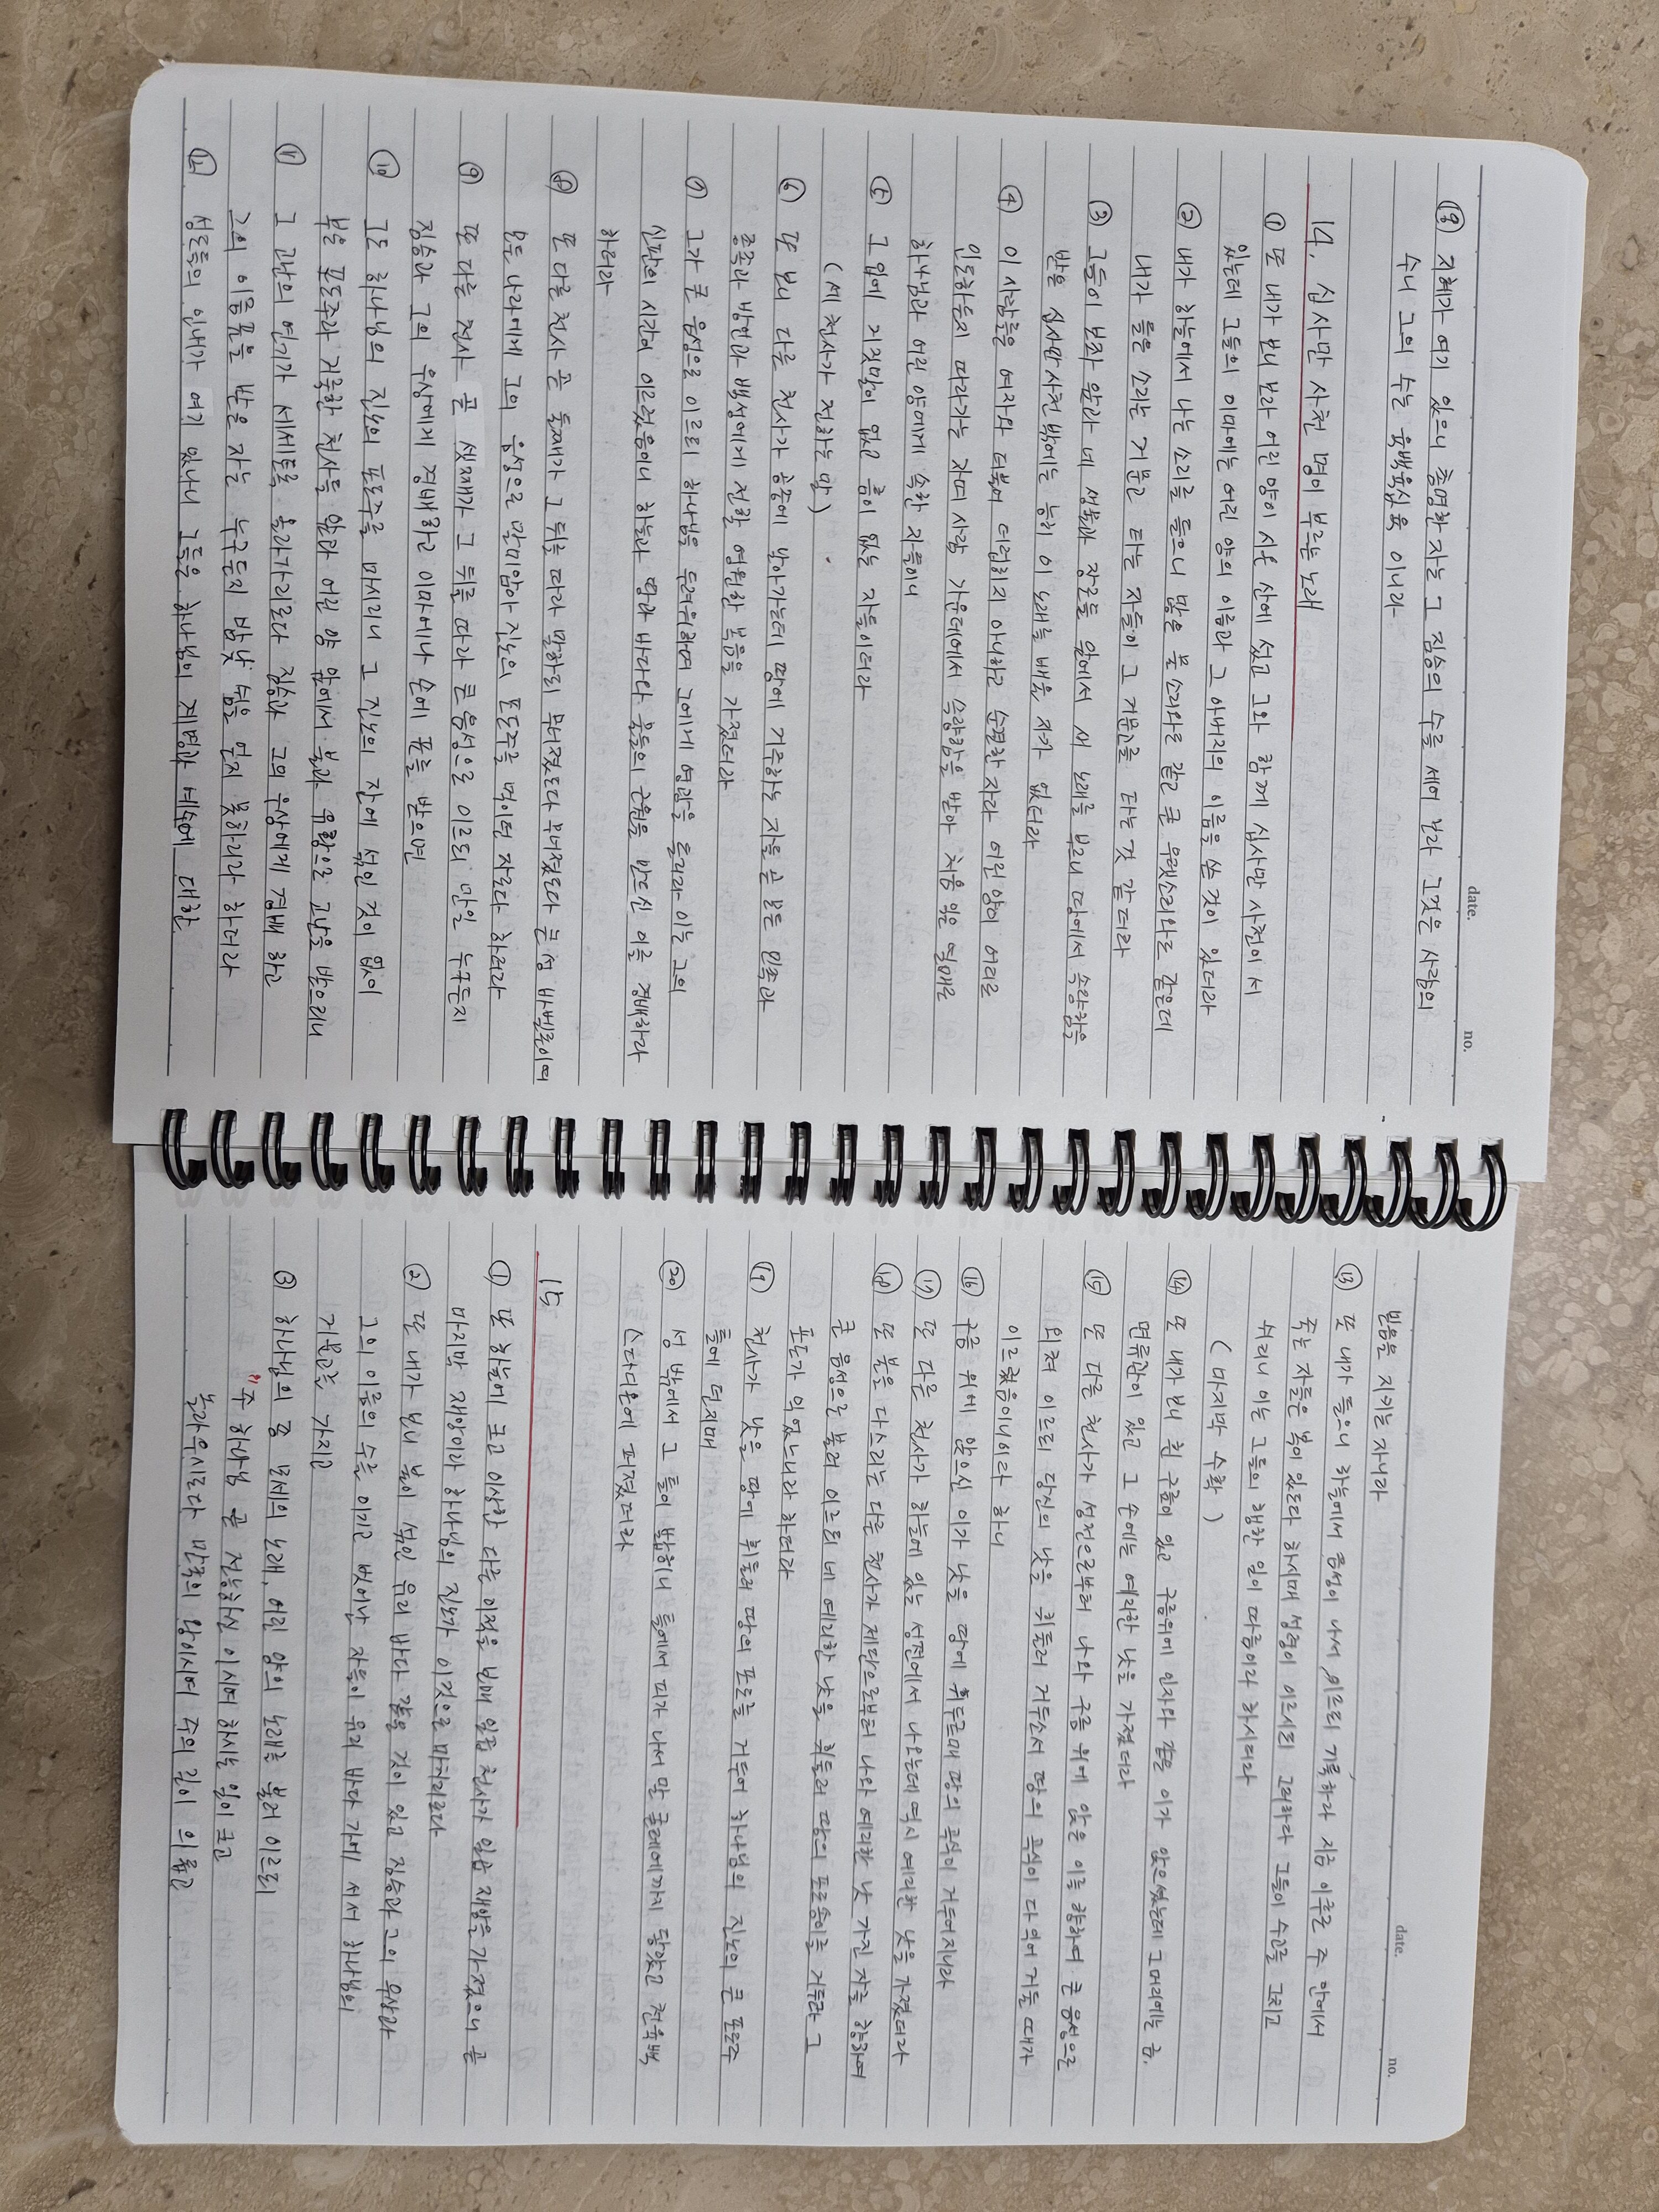 date.
no.
⑱ 지혜가 여기 있으니 총명한 자는 그 짐승의 수를 세어 보라 그것은 사람의
수니 그의 수는 육백육십육 이니라
14. 십사만 사천 명이 부르는 노래
① 또 내가 보니 보라 어린 양이 시온 산에 섰고 그와 함께 십사만 사천이 서
있는데 그들의 이마에는 어린 양의 이름과 그 아버지의 이름을 쓴 것이 있더라
② 내가 하늘에서 나는 소리를 들으니 많은 물 소리와도 같고 큰 우렛소리와도 같은데
내가 들은 소리는 거문고 타는 자들이 그 거문고를 타는 것 같더라
③ 그들이 보좌 앞과 네 생물과 장로들 앞에서 새 노래를 부르니 땅에서 속량함을
받은 십사만 사천 밖에는 능히 이 노래를 배울 자가 없더라
④ 이 사람들은 여자와 더불어 더럽히지 아니하고 순결한 자라 어린 양이 어디로
인도하든지 따라가는 자며 사람 가운데에서 속량함을 받아 처음 익은 열매로
하나님과 어린 양에게 속한 자들이니
⑤ 그 입에 거짓말이 없고 흠이 없는 자들이더라
(세 천사가 전하는 말)
⑥ 또 보니 다른 천사가 공중에 날아가는데 땅에 거주하는 자들 곧 모든 민족과
종족과 방언과 백성에게 전할 영원한 복음을 가졌더라
⑦ 그가 큰 음성으로 이르되 하나님을 두려워하며 그에게 영광을 돌리라 이는 그의
심판의 시간이 이르렀음이니 하늘과 땅과 바다와 물들의 근원을 만드신 이를 경배하라
하더라
⑧ 또 다른 천사 곧 둘째가 그 뒤를 따라 말하되 무너졌도다 무너졌도다 큰 성 바벨론이여
모든 나라에게 그의 음행으로 말미암아 진노의 포도주를 먹이던 자로다 하더라
⑨ 또 다른 천사 곧 셋째가 그 뒤를 따라 큰 음성으로 이르되 만일 누구든지
짐승과 그의 우상에게 경배하고 이마에나 손에 표를 받으면
⑩ 그도 하나님의 진노의 포도주를 마시리니 그 진노의 잔에 섞인 것이 없이
부은 포도주라 거룩한 천사들 앞과 어린 양 앞에서 불과 유황으로 고난을 받으리니
⑪ 그 고난의 연기가 세세토록 올라가리로다 짐승과 그의 우상에게 경배 하고
그의 이름표를 받은 자는 누구든지 밤낮 쉼을 얻지 못하리라 하더라
⑫ 성도들의 인내가 여기 있나니 그들은 하나님의 계명과 예수에 대한
date.
no.
믿음을 지키는 자니라
⑬ 또 내가 들으니 하늘에서 음성이 나서 이르되 기록하라 지금 이후로 주 안에서
죽는 자들은 복이 있도다 하시매 성령이 이르시되 그러하다 그들이 수고를 그치고
쉬리니 이는 그들의 행한 일이 따름이라 하시더라
(마지막 수확)
⑭ 또 내가 보니 흰 구름이 있고 구름위에 인자와 같은 이가 앉으셨는데 그 머리에는 금.
면류관이 있고 그 손에는 예리한 낫을 가졌더라
⑮ 또 다른 천사가 성전으로부터 나와 구름 위에 앉은 이를 향하여 큰 음성으로
외쳐 이르되 당신의 낫을 휘둘러 거두소서 땅의 곡식이 다 익어 거둘 때가
이르렀음이니이다 하니
⑯ 구름 위에 앉으신 이가 낫을 땅에 휘두르매 땅의 곡식이 거두어지니라
⑰ 또 다른 천사가 하늘에 있는 성전에서 나오는데 역시 예리한 낫을 가졌더라
⑱ 또 불을 다스리는 다른 천사가 제단으로부터 나와 예리한 낫 가진 자를 향하여
큰 음성으로 불러 이르되 네 예리한 낫을 휘둘러 땅의 포도송이를 거두라 그
포도가 익었느니라 하더라
⑲ 천사가 낫을 땅에 휘둘러 땅의 포도를 거두어 하나님의 진노의 큰 포도주
틀에 던지매
⑳ 성 밖에서 그 틀이 밟히니 틀에서 피가 나서 말 굴레에까지 닿았고 천육백
스다디온에 퍼졌더라
15
① 또 하늘에 크고 이상한 다른 이적을 보매 일곱 천사가 일곱 재앙을 가졌으니 곧
마지막 재앙이라 하나님의 진노가 이것으로 마치리로다
② 또 내가 보니 불이 섞인 유리 바다 같은 것이 있고 짐승과 그의 우상과
그의 이름의 수를 이기고 벗어난 자들이 유리 바다 가에 서서 하나님의
거문고를 가지고
③ 하나님의 종 모세의 노래, 어린 양의 노래를 불러 이르되
"주 하나님 곧 전능하신 이시여 하시는 일이 크고
놀라우시도다 만국의 왕이시여 주의 길이 의롭고